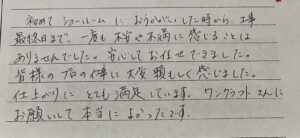 初めてショールームにおうかがいした時から、工事
最終日まで、一度も不安や不満に感じることは
ありませんでした。安心してお任せできました。
皆様のプロの仕事に大変頼もしく感じました。
仕上がりにとても満足しています。ワンクラフトさんに
お願いして本当によかったです。